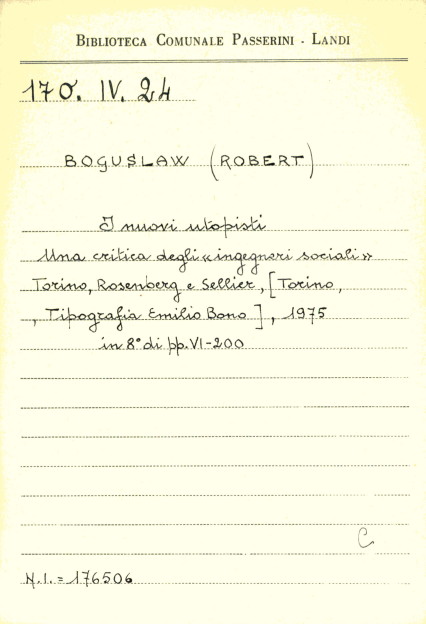 BIBLIOTECA COMUNALE PASSERINI - LANDI
170. IV. 24
BOGUSLAW (ROBERT)
I nuovi utopisti
Una critica degli «ingegneri sociali»
Torino, Rosenberg e Sellier, [Torino,
, Tipografia Emilio Bono], 1975
in 8° di pp. VI-200
C
N.I. = 176506